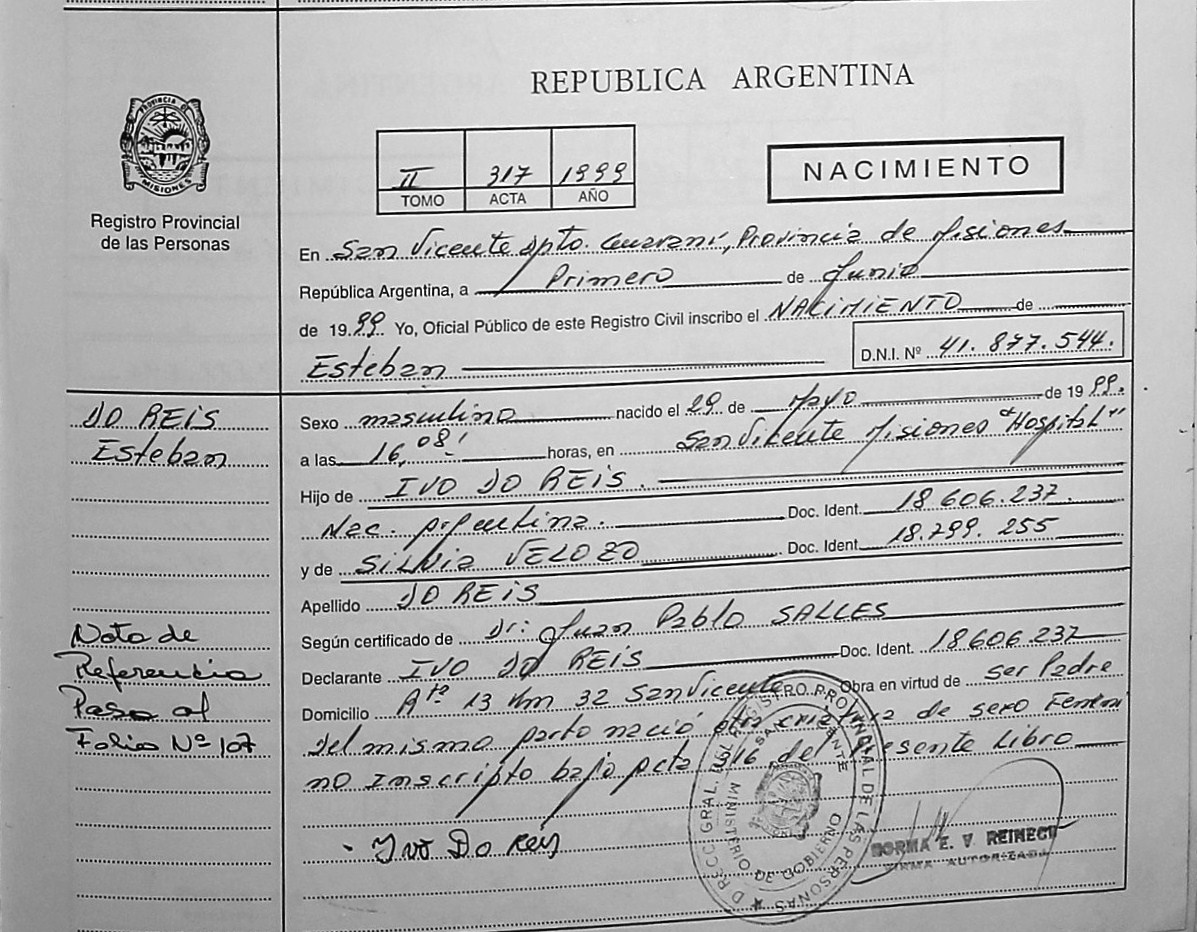 REPUBLICA ARGENTINA
PROVINCIA DE
MISIONES
Registro Provincial
de las Personas
II 317 1999
TOMO ACTA AÑO
NACIMIENTO
En San Vicente Dpto. Guaraní, Provincia de Misiones
República Argentina, a Primero de Junio
de 1999 Yo, Oficial Público de este Registro Civil inscribo el NACIMIENTO de
Esteban D.N.I. Nº 41.877.544.
DO REIS
Esteban
Sexo masculino nacido el 29 de Mayo de 1999.
a las 16,08' horas, en San Vicente Misiones "Hospital"
Hijo de IVO DO REIS.
Nac. Argentina. Doc. Ident. 18.606.237.
y de SILVIA VELOZO Doc. Ident. 18.799.255
Apellido DO REIS
Según certificado de Dr: Juan Pablo SALLES
Declarante IVO DO REIS Doc. Ident. 18606.237
Domicilio Rta 13 Km 32 San Vicente Obra en virtud de ser Padre
Del mismo parto nació otra criatura de sexo Femeni
no Inscripto bajo Acta 316 del presente Libro
Nota de
Referencia
Paso al
Folio Nº 107
Ivo Do Reis
GRAL. DEL REGISTRO PROVINCIAL DE LAS PERSONAS
SAN VICENTE
MINISTERIO DE GOBIERNO
NORMA E. V. REINECK
FIRMA AUTORIZADA